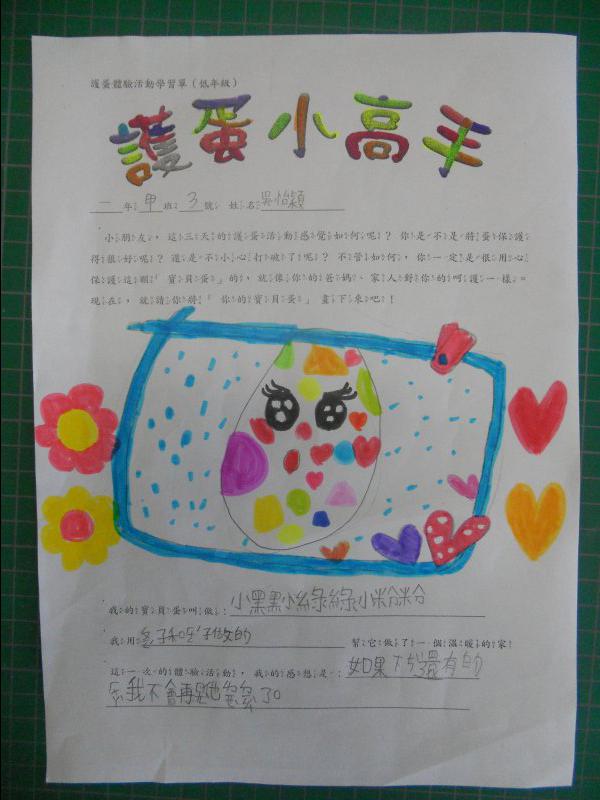 護蛋體驗活動學習單（低年級）
護蛋小高手
二年甲班3號 姓名吳怡穎
小朋友，這三天的護蛋活動感覺如何呢？你是不是將蛋保護
得很好呢？還是不小心打破了呢？不管如何，你一定是很用心
保護這顆「寶貝蛋」的，就像你的爸媽、家人對你的呵護一樣。
現在，就請你將「你的寶貝蛋」畫下來吧！
我的寶貝蛋叫做：小黑黑小綠綠小粉粉
我用子和子做的幫它做了一個溫暖的家！
這一次的體驗活動，我的感想是：如果下次還有的
我不會再了。